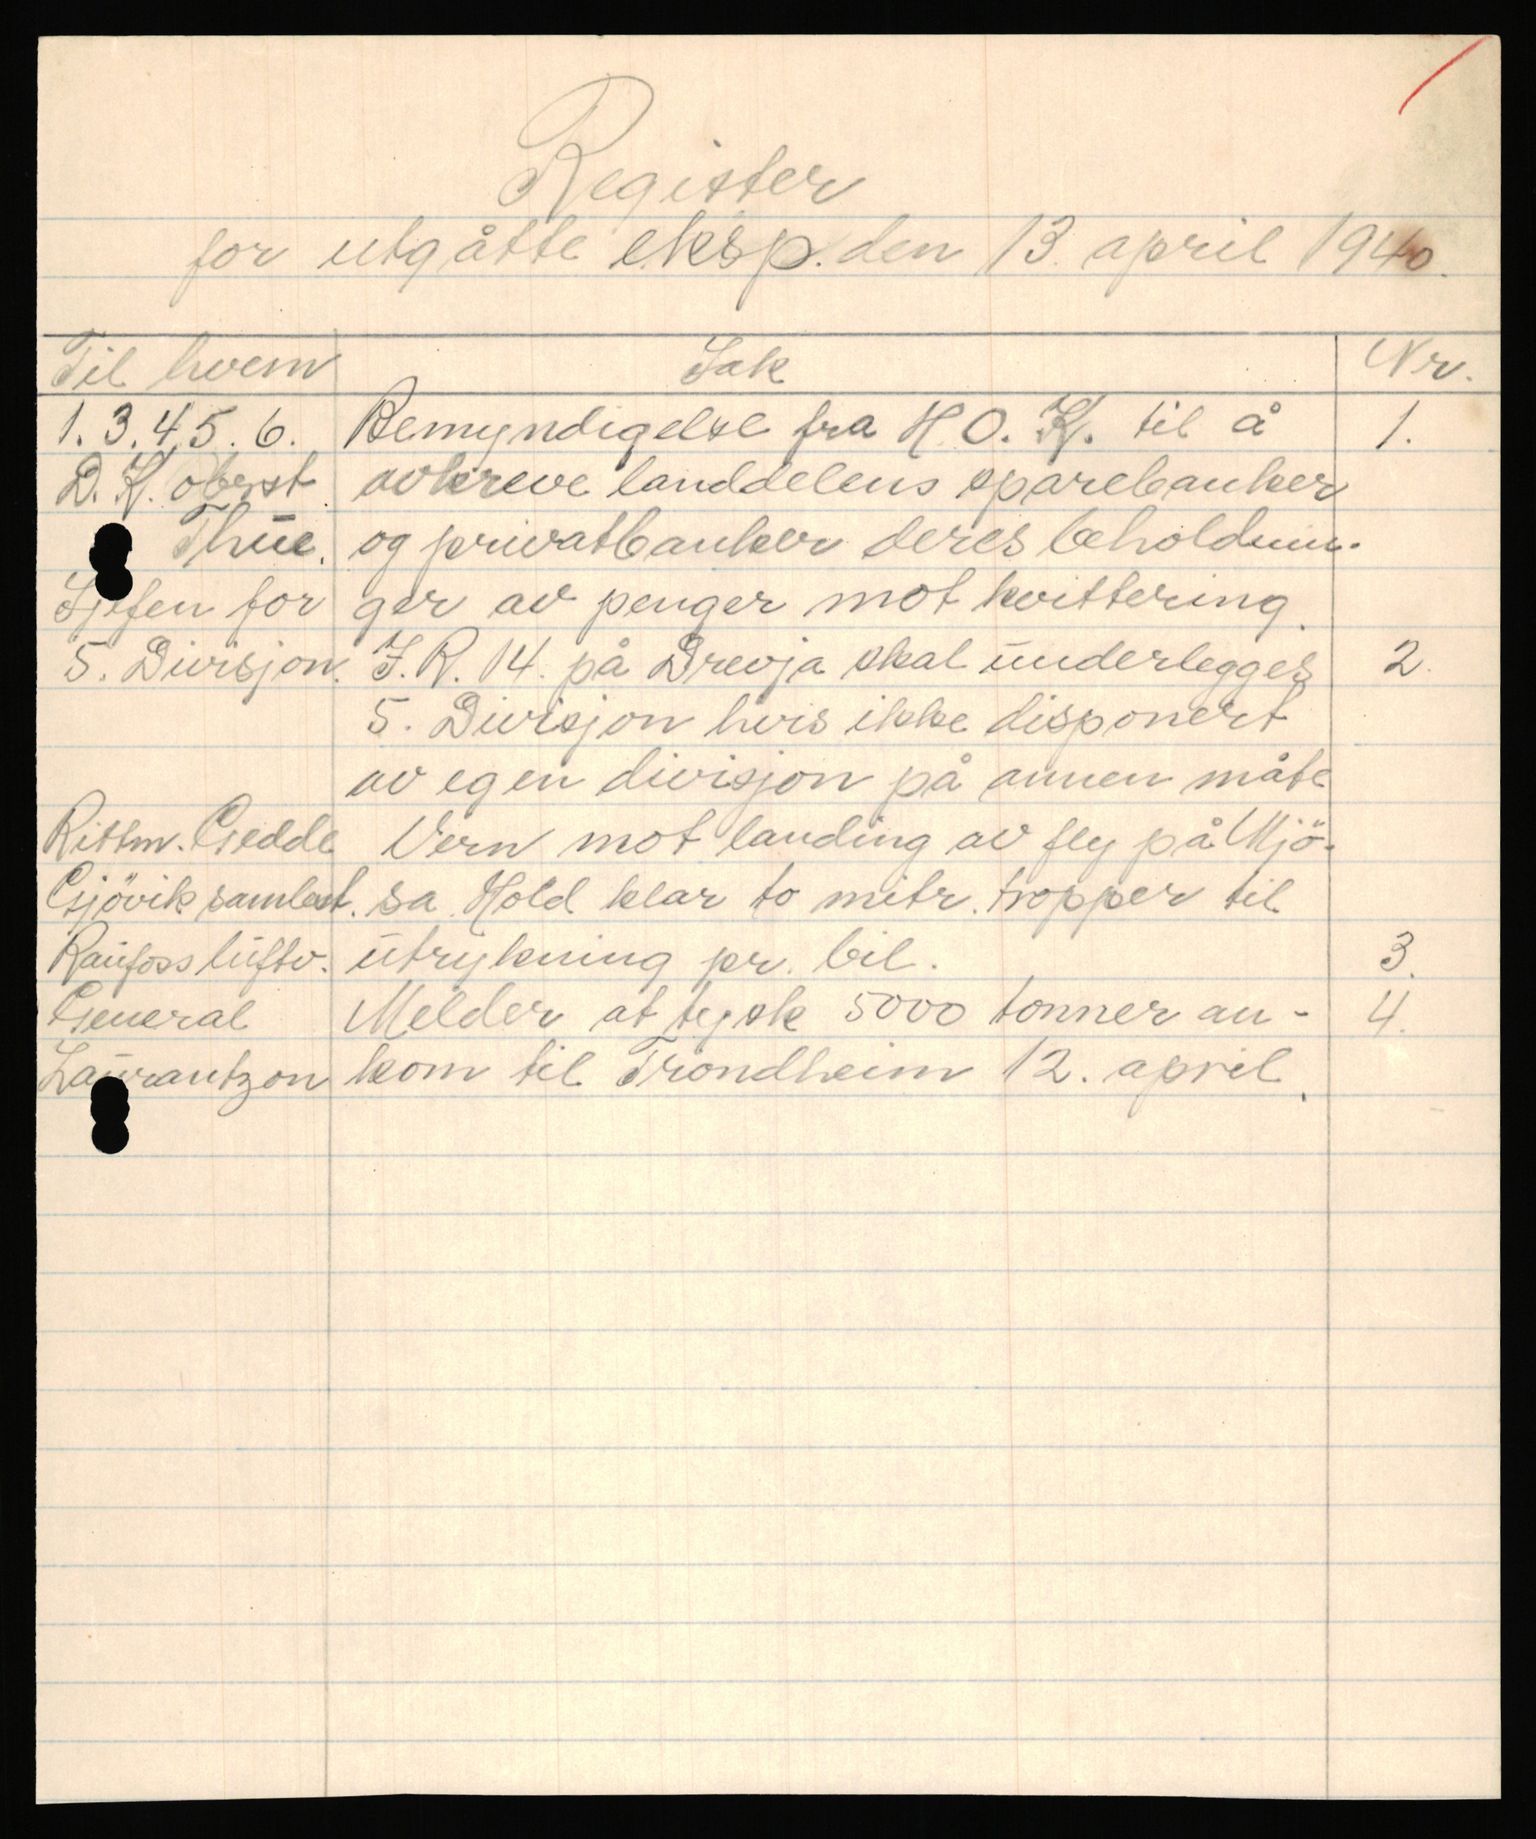 Register
for utgåtte eksp. den 13. april 1940.
Til hvem Sak Nr.
1. 3. 4. 5. 6. Bemyndigelse fra H. O. K. til å 1.
D. K. oberst avkreve landdelens sparebanker
Thue. og privatbanker deres beholdnin-
Sjefen for ger av penger mot kvittering.
5. Divisjon. I. R. 14. på Drevja skal underlegges 2.
5. Divisjon hvis ikke disponert
av egen divisjon på annen måte
Rittm. Gedde Vern mot landing av fly på Mjö-
Gjövik samband. sa. Hold klar to mitr. tropper til
Raufoss luftv. utrykning pr. bil. 3.
General Melder at tysk 5000 tonner an- 4.
Laurantzon kom til Trondheim 12. april.